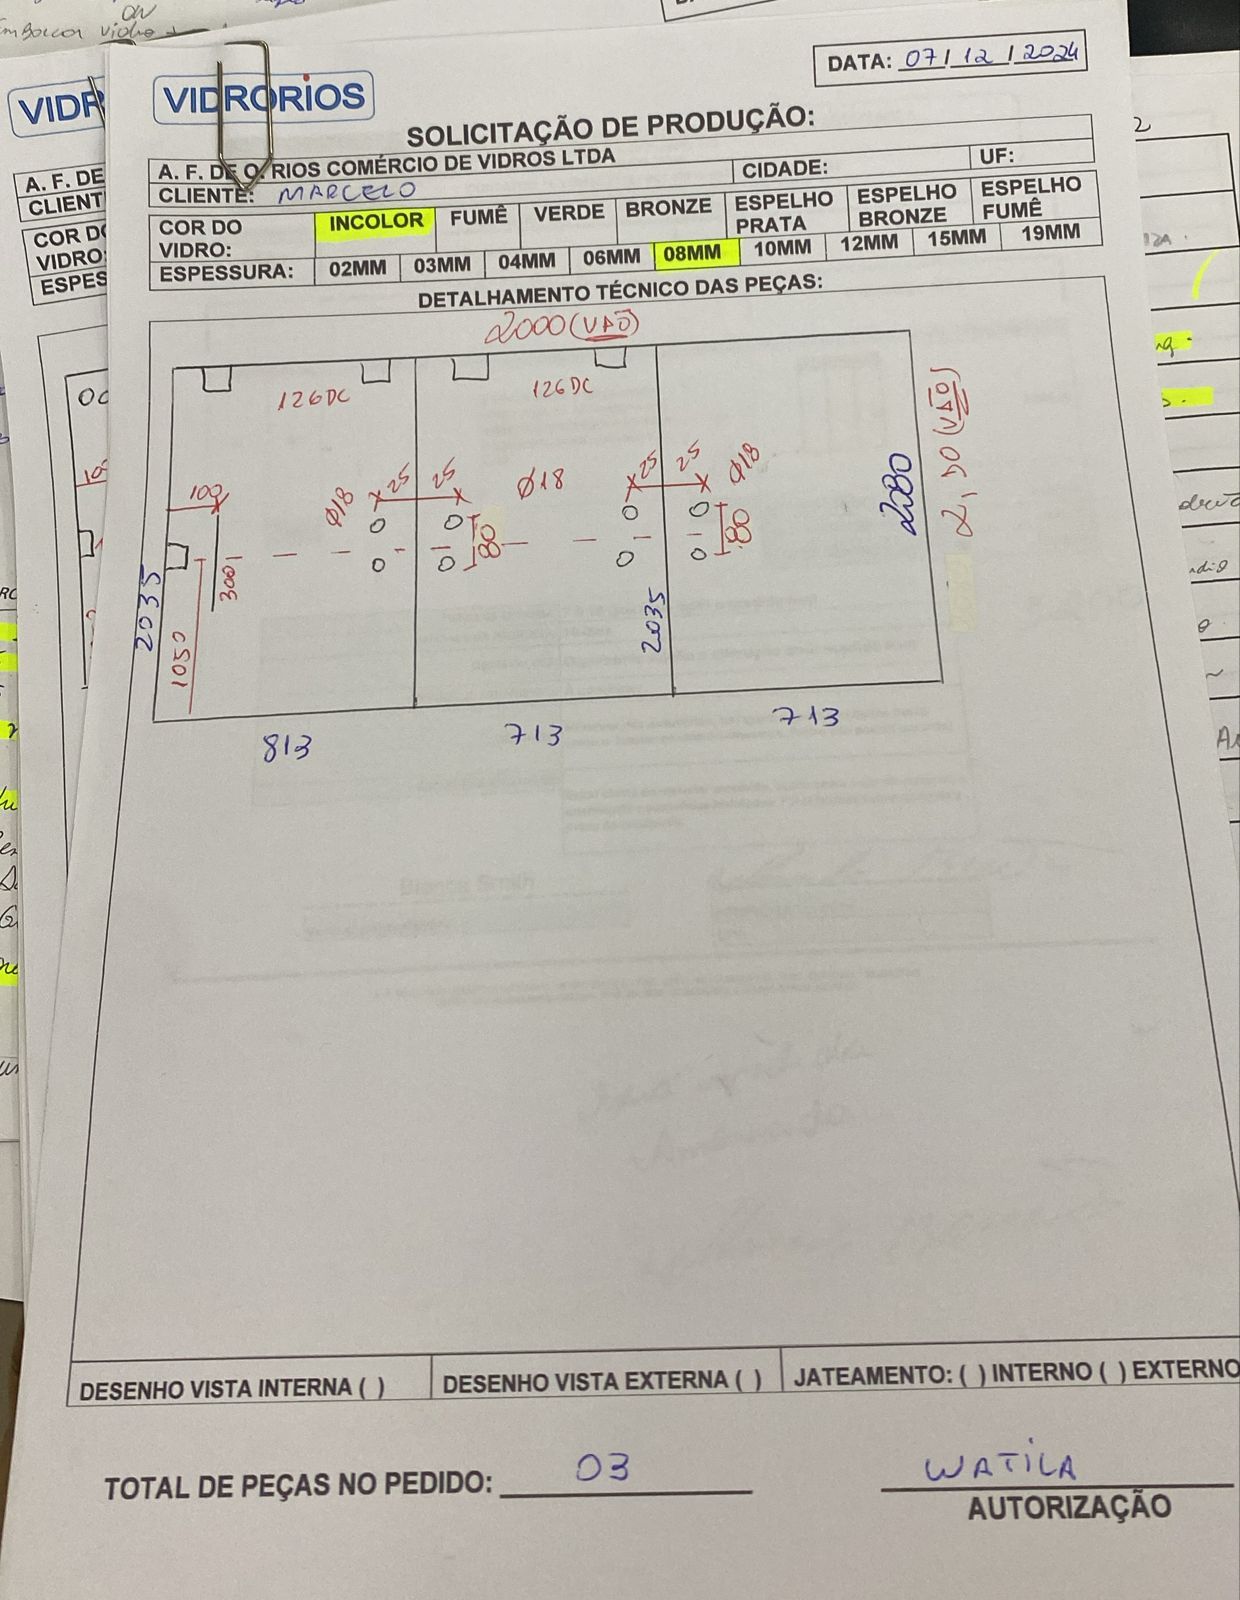 DATA: 07/12/2024
VIDRORIOS
SOLICITAÇÃO DE PRODUÇÃO:
A. F. DE O. RIOS COMÉRCIO DE VIDROS LTDA CIDADE: UF:
CLIENTE: MARCELO
COR DO VIDRO: INCOLOR FUMÊ VERDE BRONZE ESPELHO PRATA ESPELHO BRONZE ESPELHO FUMÊ
ESPESSURA: 02MM 03MM 04MM 06MM 08MM 10MM 12MM 15MM 19MM
DETALHAMENTO TÉCNICO DAS PEÇAS:
2000 (VÃO)
126DC 126DC
100 Ø18 25 25 Ø18 25 25 Ø18
80 80
300
1050
2035 2035 2080 (VÃO)
813 713 713
DESENHO VISTA INTERNA ( ) DESENHO VISTA EXTERNA ( ) JATEAMENTO: ( ) INTERNO ( ) EXTERNO
TOTAL DE PEÇAS NO PEDIDO: 03
WATILA
AUTORIZAÇÃO
VIDR
A. F. DE
CLIENT
COR DO
VIDRO
ESPES